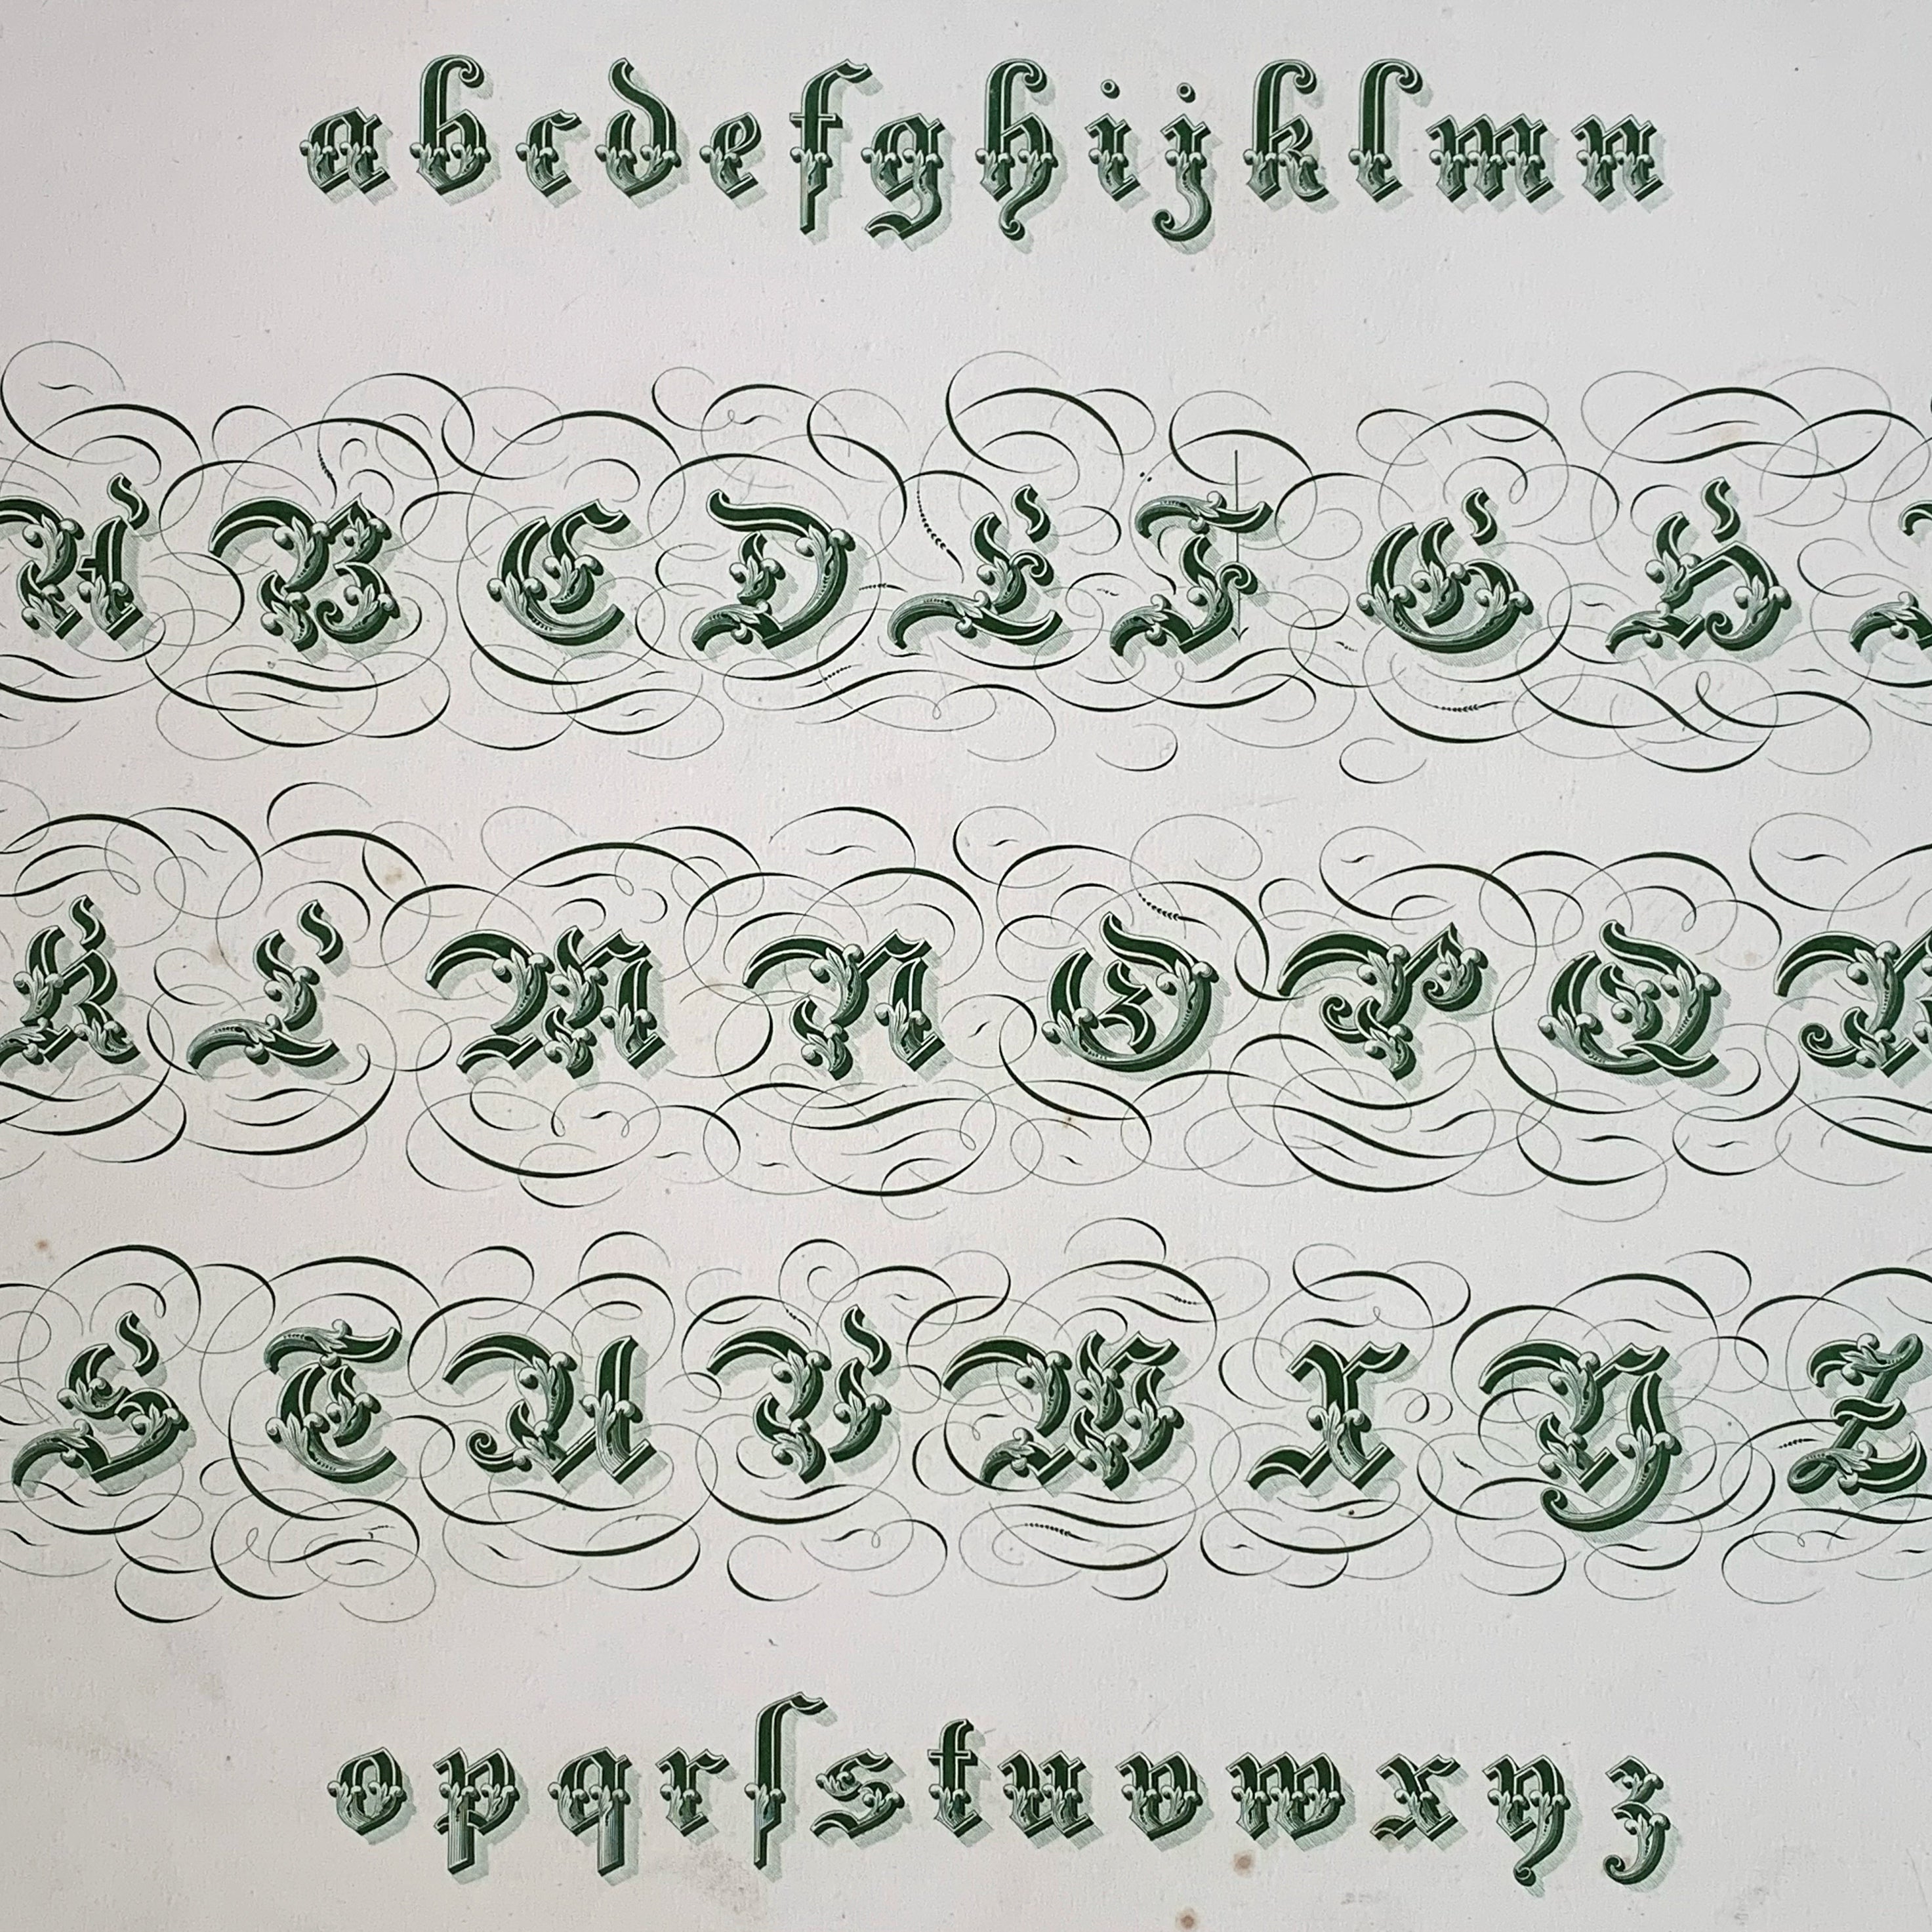 a b c d e f g h i j k l m n
A B C D E F G H I
K L M N O P Q R
S T U V W X Y Z
o p q r ſ s t u v w x y z